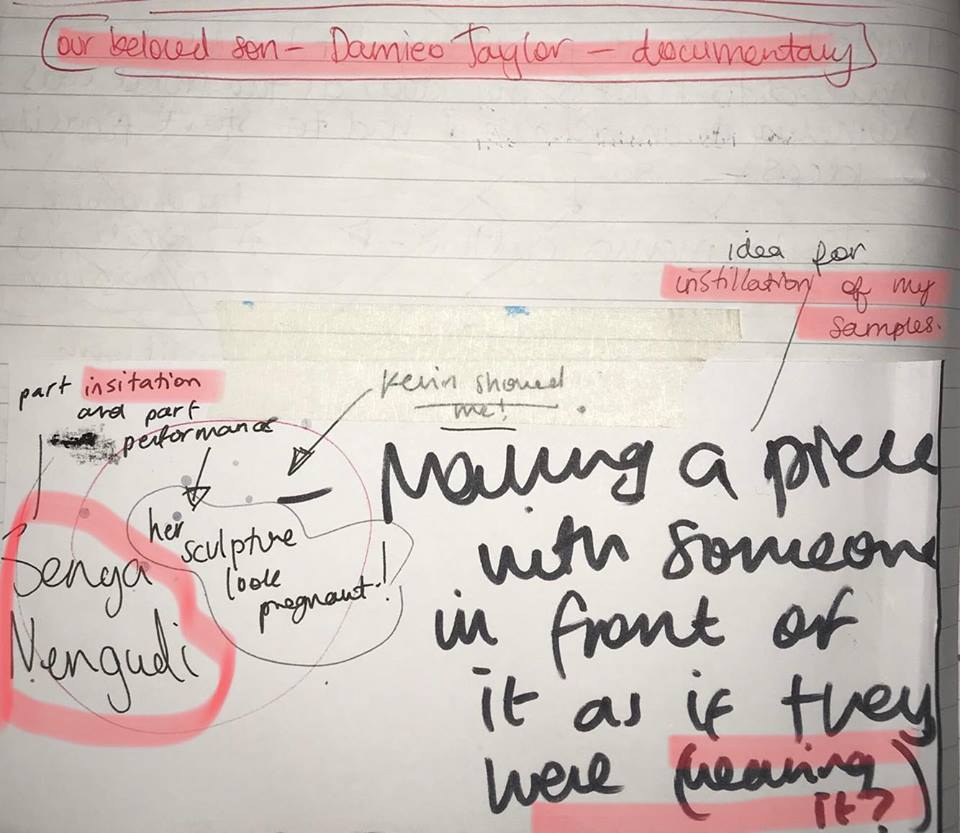 our beloved son - Damieo Taylor - documentary
idea for
instillation of my
samples.
part insitation
and part
performance
Kevin showed
me!
her
sculpture
look
pregnant!
Senga
Nengudi
Making a piece
with someone
in front of
it as if they
were (wearing
it?)